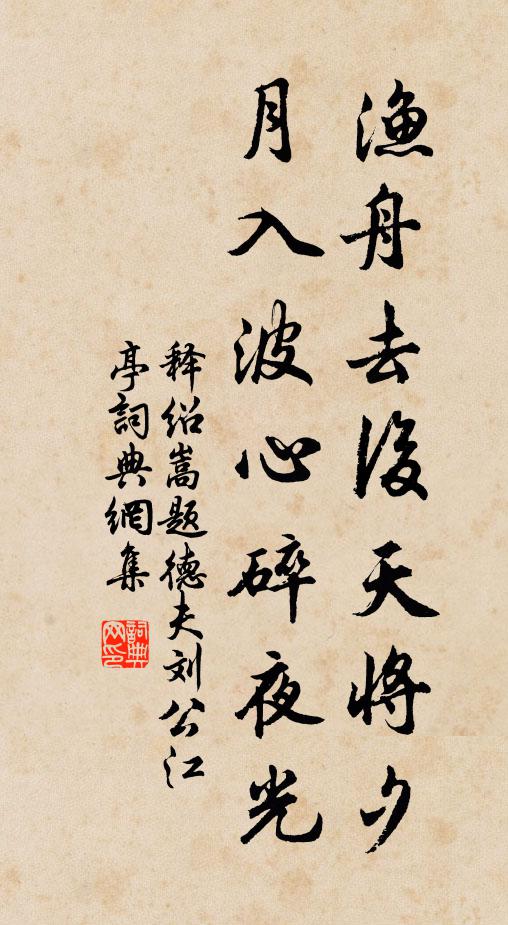 渔舟去後天将夕
月入波心碎夜光
释绍嵩题德夫刘公江
亭詞典網集
詞典
网印